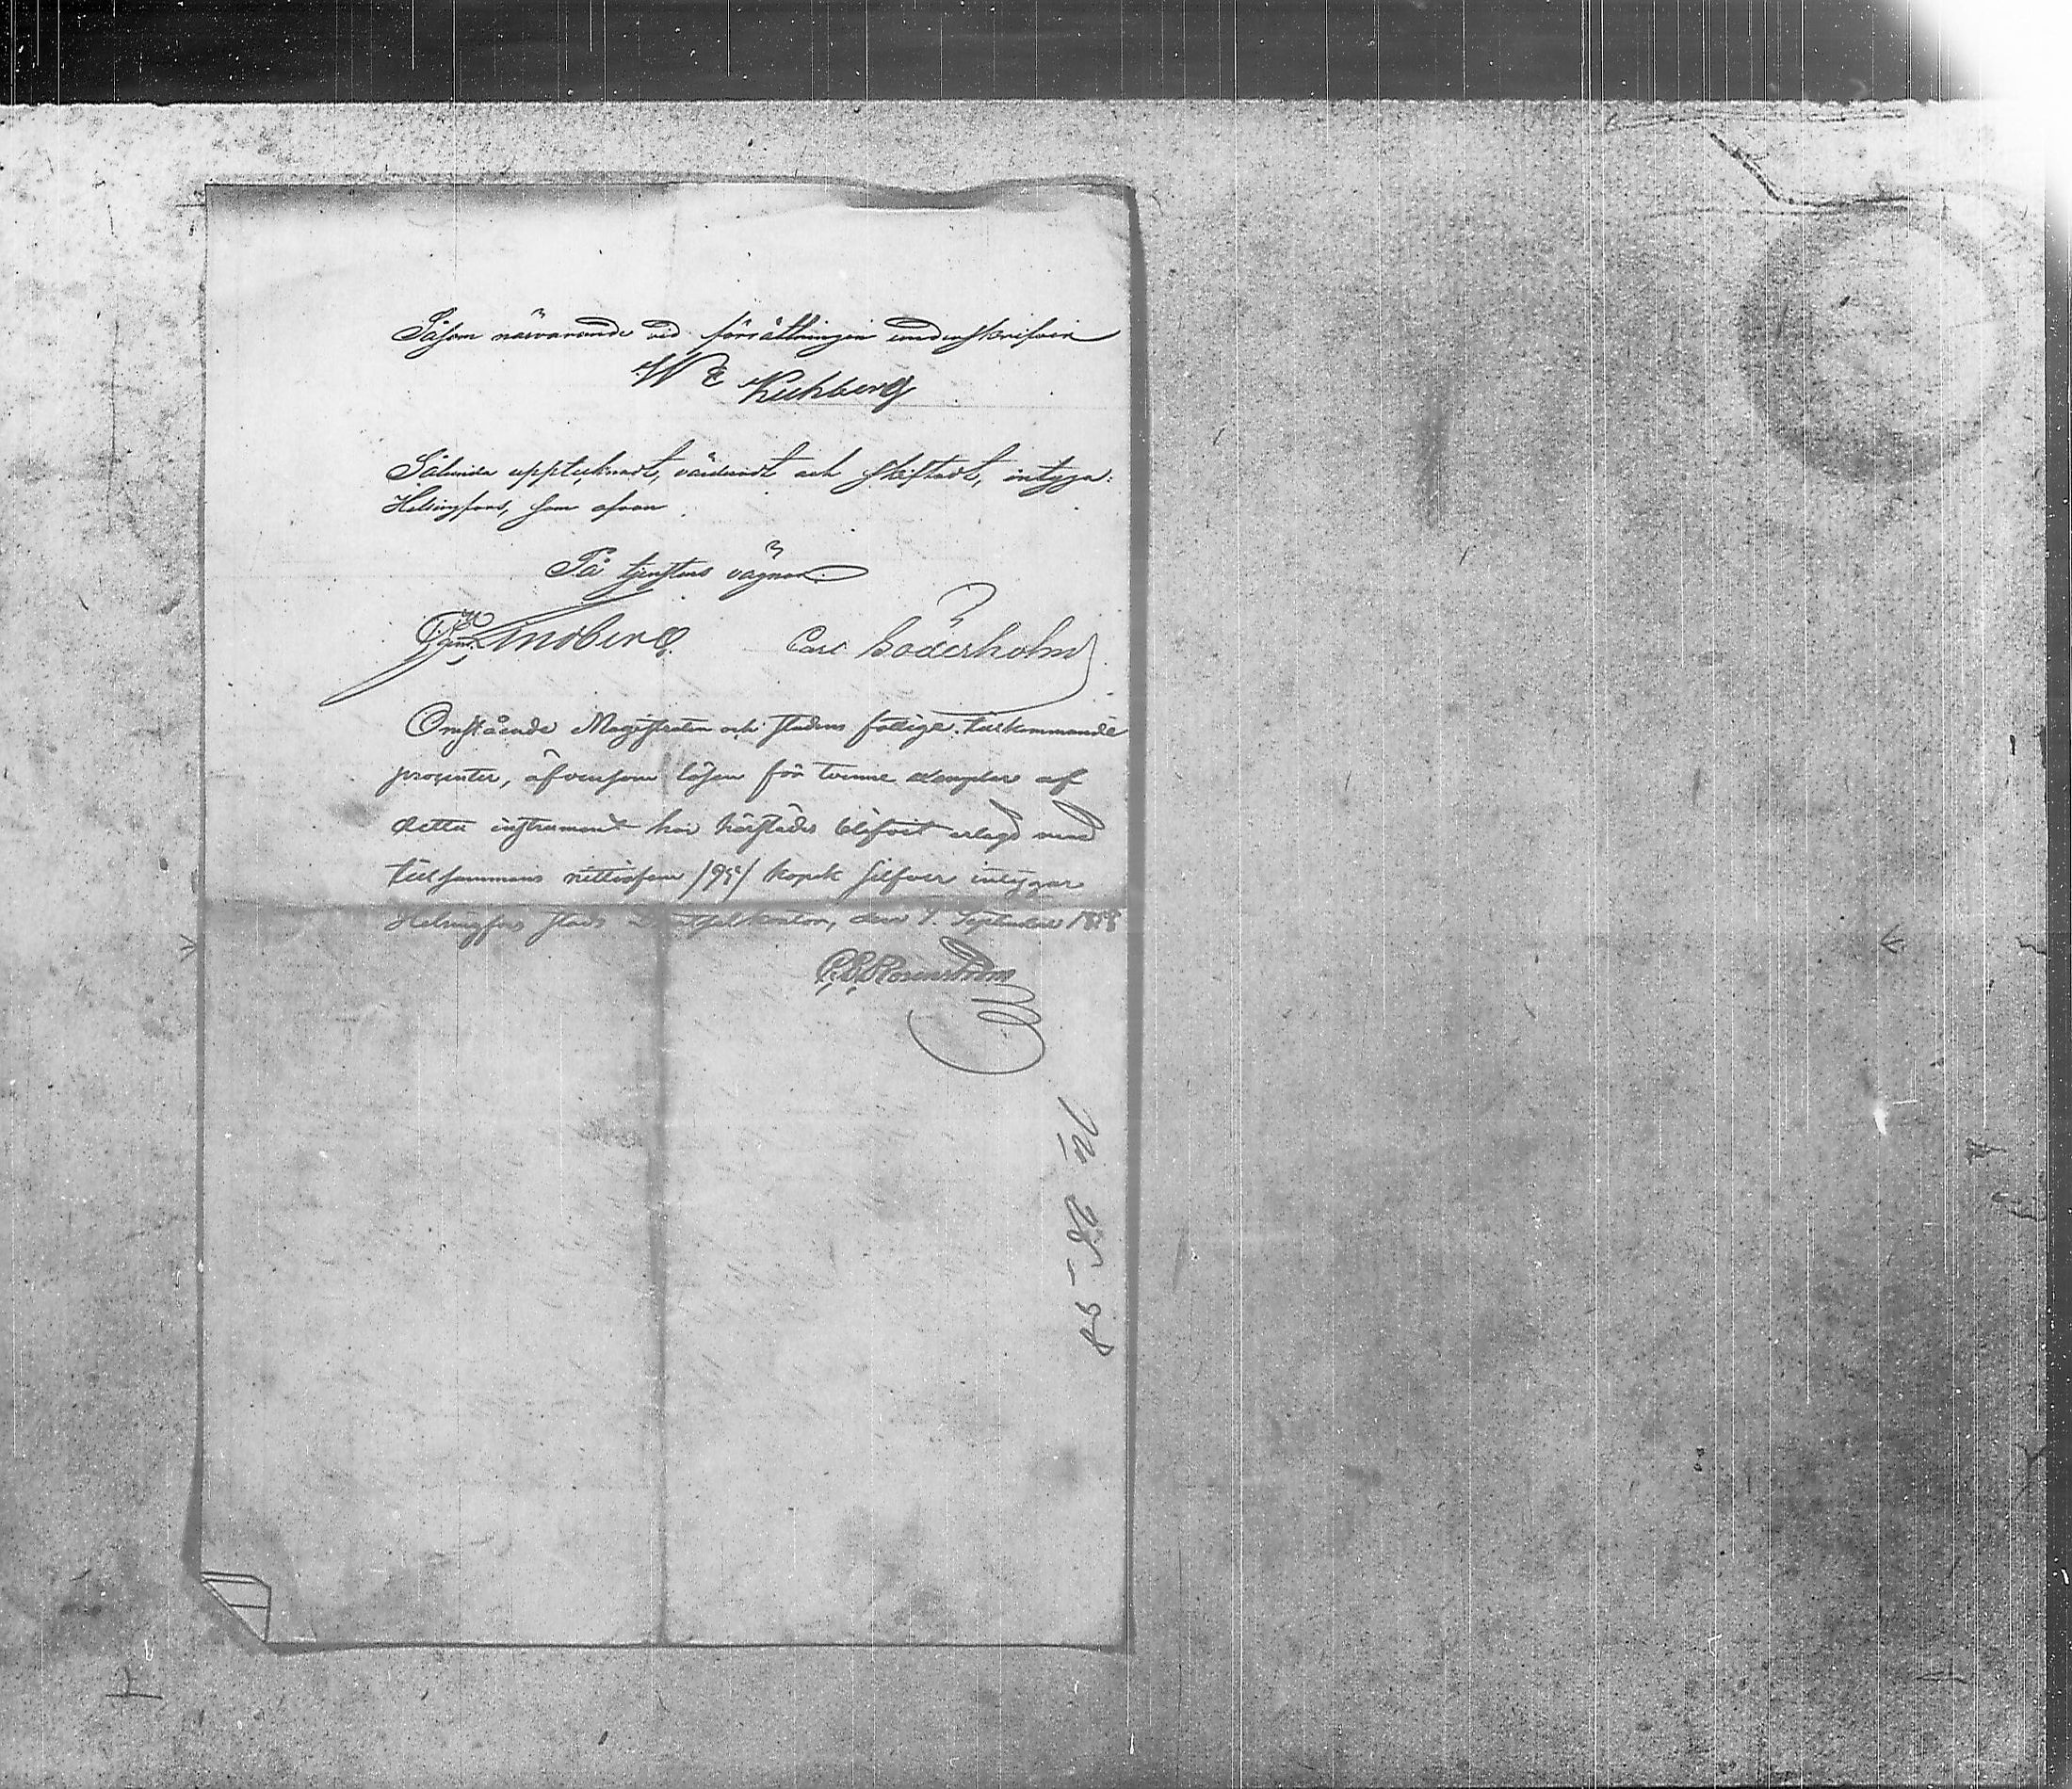 Såsom närvarande vid förrättningen underskrifver
W E Kuhberg
Sålunda upptecknadt, värderadt och skiftadt, intyga:
Helsingfors, som ofvan
På tjenstens vägnar:
Lindberg Carl Söderholm
Omstående Magistraten och stadens fattige tillkommande
procenter, äfvensom lösen för tvenne exemplar af
detta instrument har härstädes blifvit erlagd med
tillsammans nittiofem /95/ kopek silfver intygar
Helsingfors stads kontor, den 7. September 1858
C. E. Rosenström